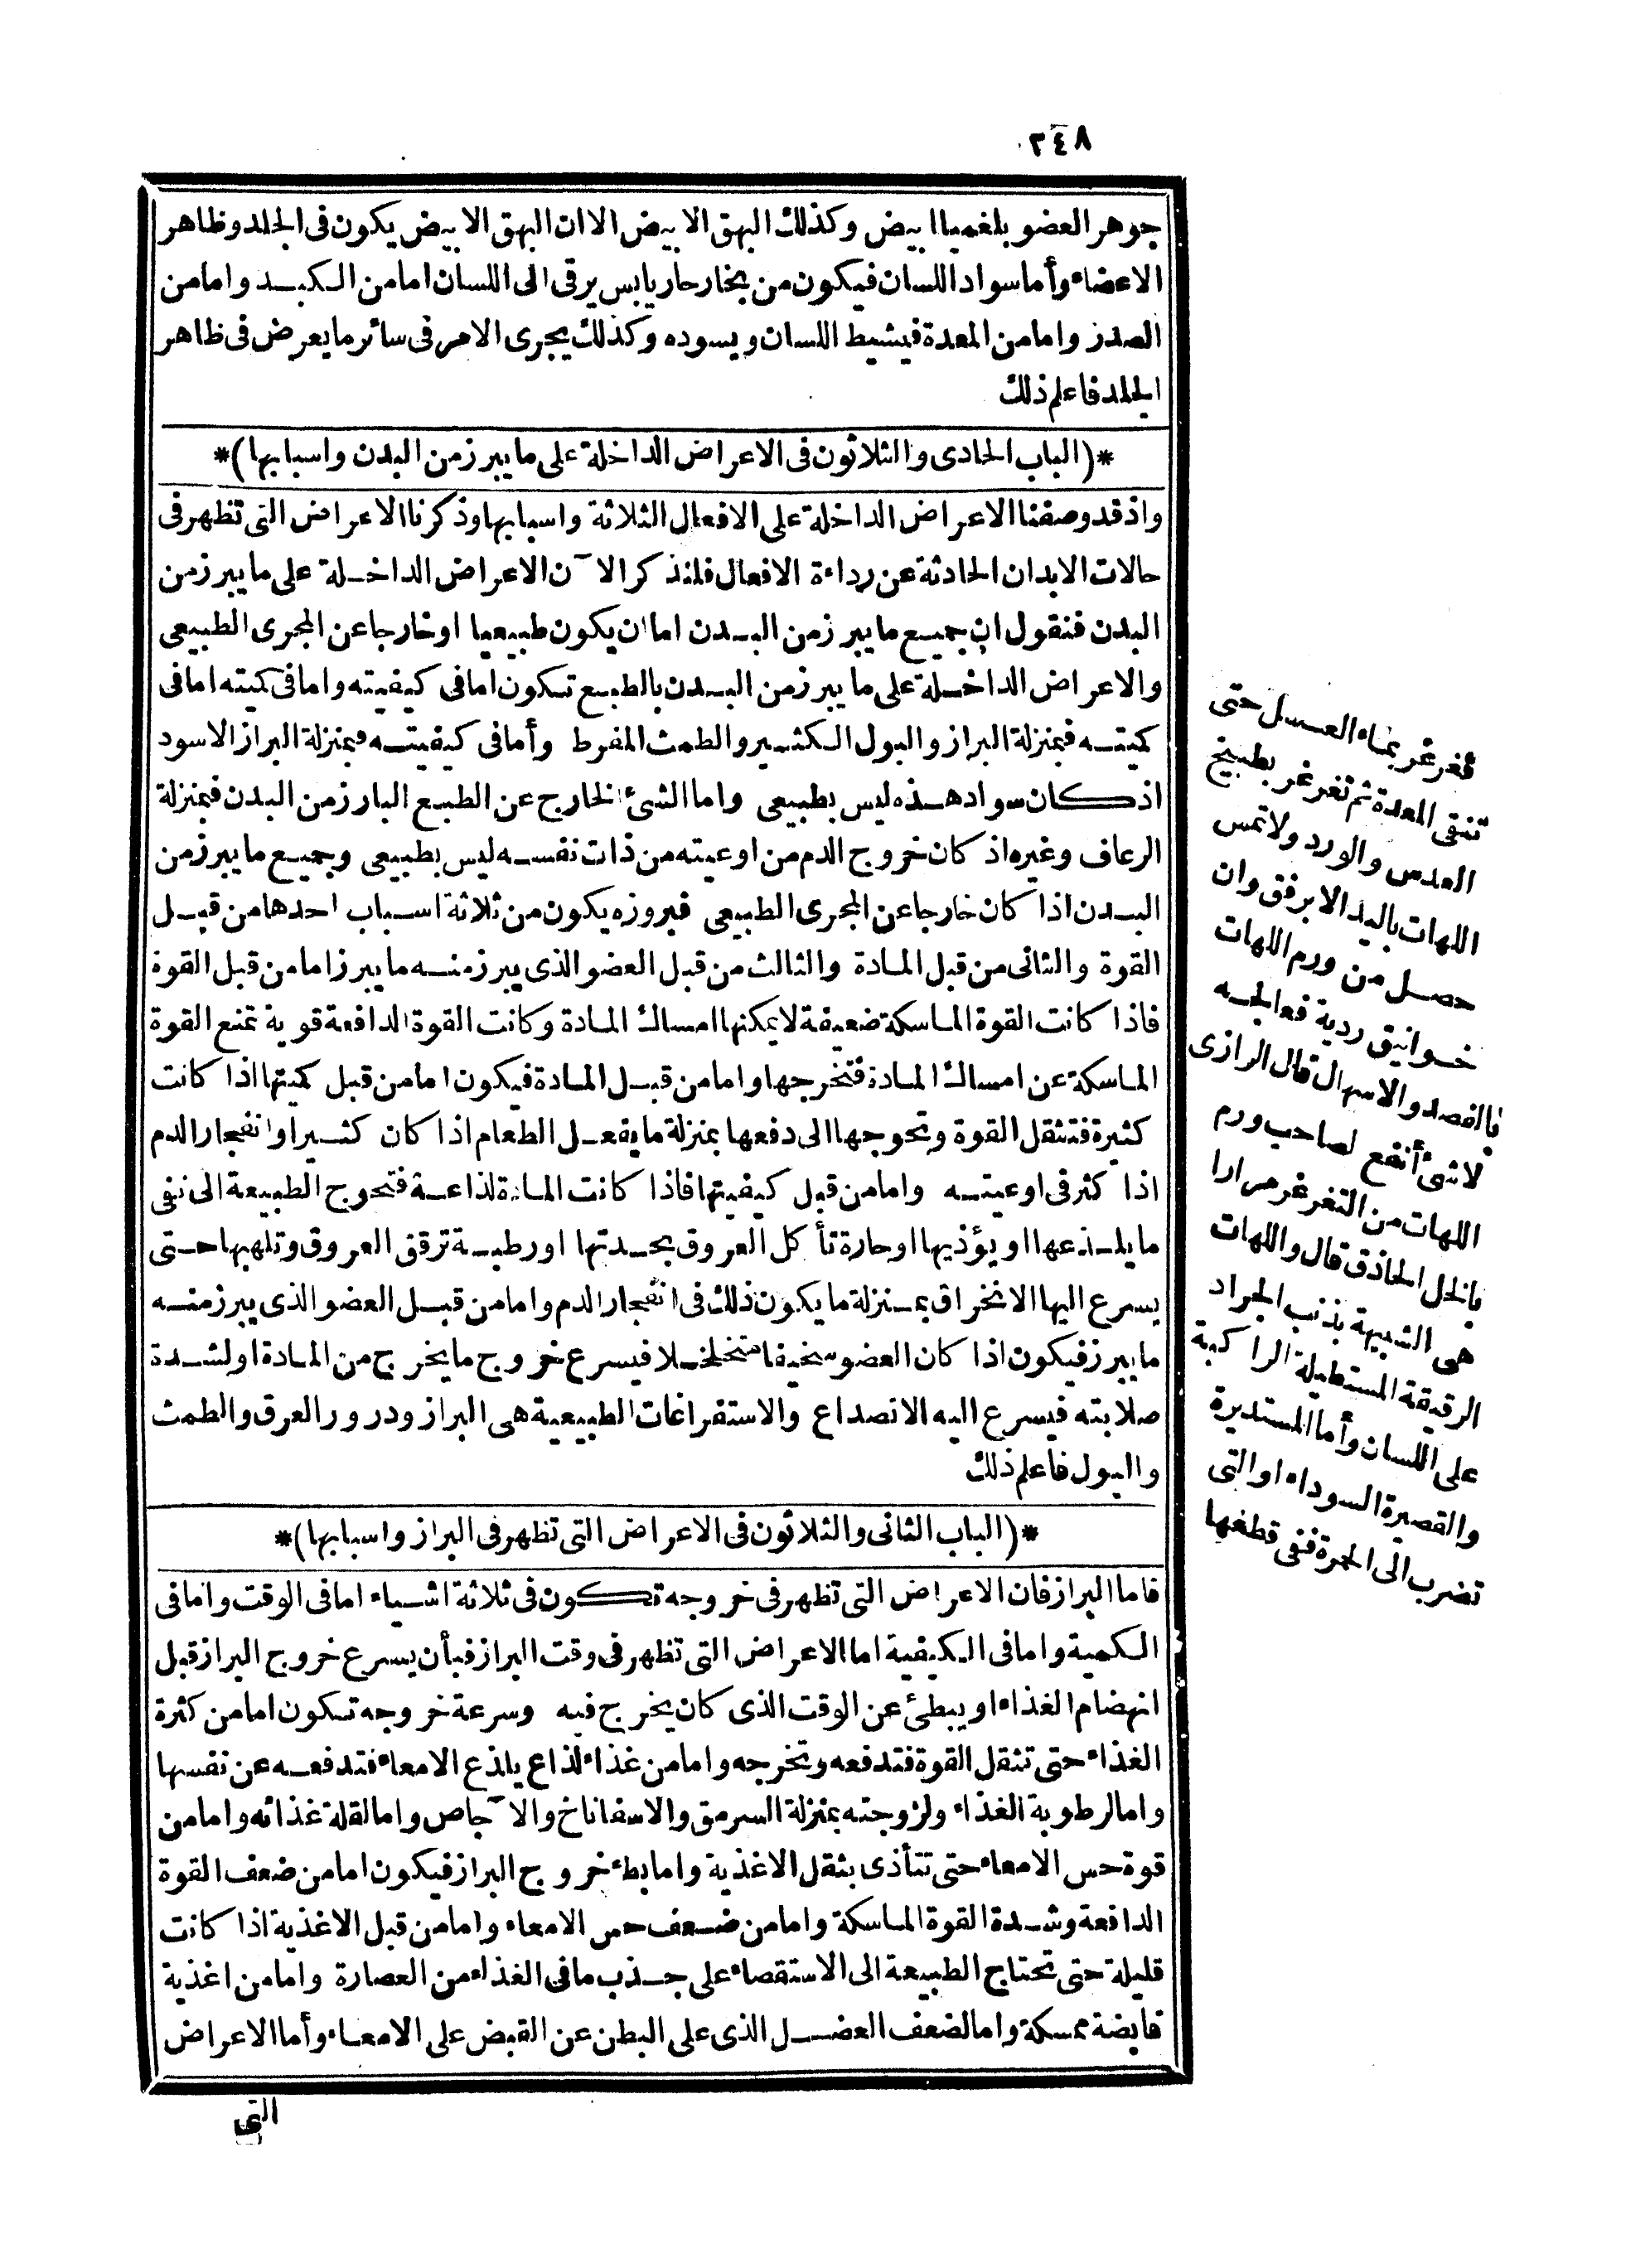 ٣٤٨
جوهر العضو بلغميا ابيض وكذلك البهق الابيض الا ان البهق الابيض يكون فى الجلد وظاهر
الاعضاء وأما سواد اللسان فيكون من بخار حار يابس يرقى الى اللسان اما من الكبد واما من
الصدر واما من المعدة فيشيط اللسان ويسوده وكذلك يجرى الامر فى سائر ما يعرض فى ظاهر
الجلد فاعلم ذلك
*(الباب الحادى والثلاثون فى الاعراض الداخلة على ما يبرز من البدن واسبابها)*
واذ قد وصفنا الاعراض الداخلة على الافعال الثلاثة واسبابها وذكرنا الاعراض التى تظهر فى
حالات الابدان الحادثة عن رداءة الافعال فلنذكر الآن الاعراض الداخلة على ما يبرز من
البدن فنقول ان جميع ما يبرز من البدن اما ان يكون طبيعيا او خارجا عن المجرى الطبيعى
والاعراض الداخلة على ما يبرز من البدن بالطبع تكون اما فى كيفيته واما فى كميته اما فى
كميته فبمنزلة البراز والبول الكثير والطمث المفرط وأما فى كيفيته فبمنزلة البراز الاسود
اذ كان سواد هذه ليس بطبيعى واما الشئ الخارج عن الطبع البارز من البدن فبمنزلة
الرعاف وغيره اذ كان خروج الدم من اوعيته من ذات نفسه ليس بطبيعى وجميع ما يبرز من
البدن اذا كان خارجا عن المجرى الطبيعى فبروزه يكون من ثلاثة اسباب احدها من قبل
القوة والثانى من قبل المادة والثالث من قبل العضو الذى يبرز منه ما يبرز اما من قبل القوة
فاذا كانت القوة الماسكة ضعيفة لا يمكنها امساك المادة وكانت القوة الدافعة قوية تمنع القوة
الماسكة عن امساك المادة فتخرجها واما من قبل المادة فيكون اما من قبل كميتها اذا كانت
كثيرة فتثقل القوة وتحوجها الى دفعها بمنزلة ما يفعل الطعام اذا كان كثيرا وانفجار الدم
اذا كثر فى اوعيته واما من قبل كيفيتها فاذا كانت المادة لذاعة فتحوج الطبيعة الى نفى
ما يلذعها او يؤذيها او حارة تأكل العروق بحدتها او رطبة ترقق العروق وتلهبها حتى
يسرع اليها الانخراق بمنزلة ما يكون ذلك فى انفجار الدم واما من قبل العضو الذى يبرز منه
ما يبرز فيكون اذا كان العضو سخيفا متخلخلا فيسرع خروج ما يخرج من المادة او لشدة
صلابته فيسرع اليه الانصداع والاستفراغات الطبيعية هى البراز ودرور العرق والطمث
والبول فاعلم ذلك
*(الباب الثانى والثلاثون فى الاعراض التى تظهر فى البراز واسبابها)*
فاما البراز فان الاعراض التى تظهر فى خروجه تكون فى ثلاثة اشياء اما فى الوقت واما فى
الكمية واما فى الكيفية اما الاعراض التى تظهر فى وقت البراز فبأن يسرع خروج البراز قبل
انهضام الغذاء او يبطئ عن الوقت الذى كان يخرج فيه وسرعة خروجه تكون اما من كثرة
الغذاء حتى تثقل القوة فتدفعه وتخرجه واما من غذاء لذاع يلذع الامعاء فتدفعه عن نفسها
واما لرطوبة الغذاء ولزوجته بمنزلة السرمق والاسفاناخ والآجاص واما لقلة غذائه واما من
قوة حس الامعاء حتى تتأذى بثقل الاغذية واما بطء خروج البراز فيكون اما من ضعف القوة
الدافعة وشدة القوة الماسكة واما من ضعف حس الامعاء واما من قبل الاغذية اذا كانت
قليلة حتى تحتاج الطبيعة الى الاستقصاء على جذب ما فى الغذاء من العصارة واما من اغذية
قابضة ممسكة واما لضعف العضل الذى على البطن عن القبض على الامعاء وأما الاعراض
التى
فغرغر بماء العسل حتى
تنقى المعدة ثم تغرغر بطبيخ
العدس والورد ولا تمس
اللهات باليد الا برفق وان
حصل من ورم اللهات
خوانيق ردية فعالجه
بالفصد والاسهال قال الرازى
لا شئ أنفع لصاحب ورم
اللهات من التغرغر مرارا
بالخل الحاذق قال واللهات
هى الشبيهة بذنب الجراد
الرقيقة المستطيلة الراكبة
على اللسان وأما المستديرة
والقصيرة السوداء او التى
تضرب الى الحمرة ففى قطعها